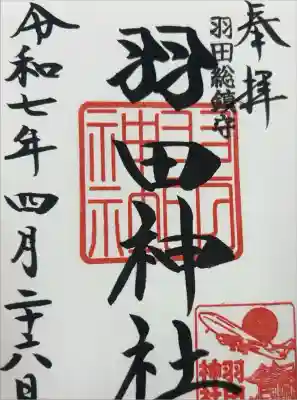 奉拝
羽田総鎮守
羽田神社
令和七年四月二十六日
羽田
神社